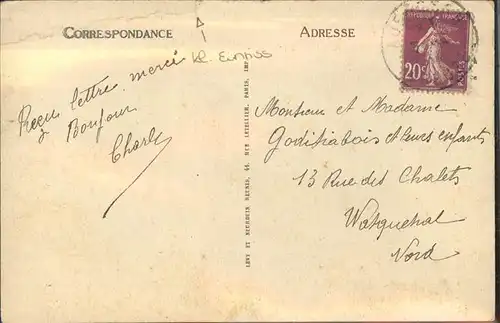 CORRESPONDANCE
Kl. Einriss
Reçu lettre, merci
Bonjour
Charly
LEVY ET NEURDEIN REUNIS, 44, RUE LETELLIER, PARIS, IMP.
ADRESSE
RÉPUBLIQUE FRANÇAISE
20c
POSTES
Monsieur et Madame
Godichabois et leurs enfants
13 Rue des Chalets
Watquehal
Nord